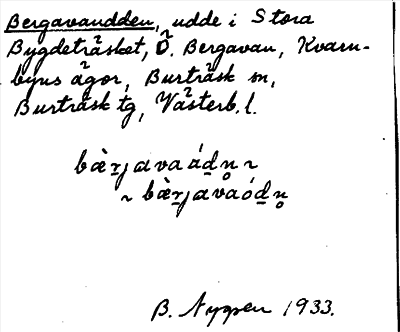 Bergavaudden, udde i Stora
Bygdeträsket, Ö. Bergavan, Kvarn-
byns ägor, Burträsk sn,
Burträsk tg, Västerb. l.
bæ̀r̲javaád̲n̥ ~
~ bæ̀r̲javaód̲n̥
B. Nygren 1933.